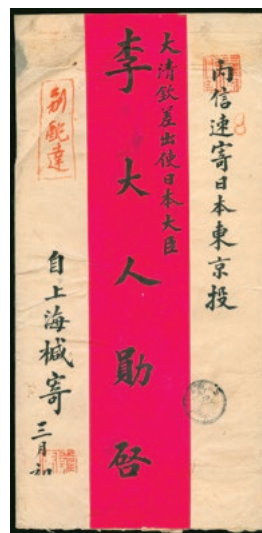 內信速寄日本東京投
大清欽差出使日本大臣
李大人勛啓
別配達
自上海椷寄
三月初